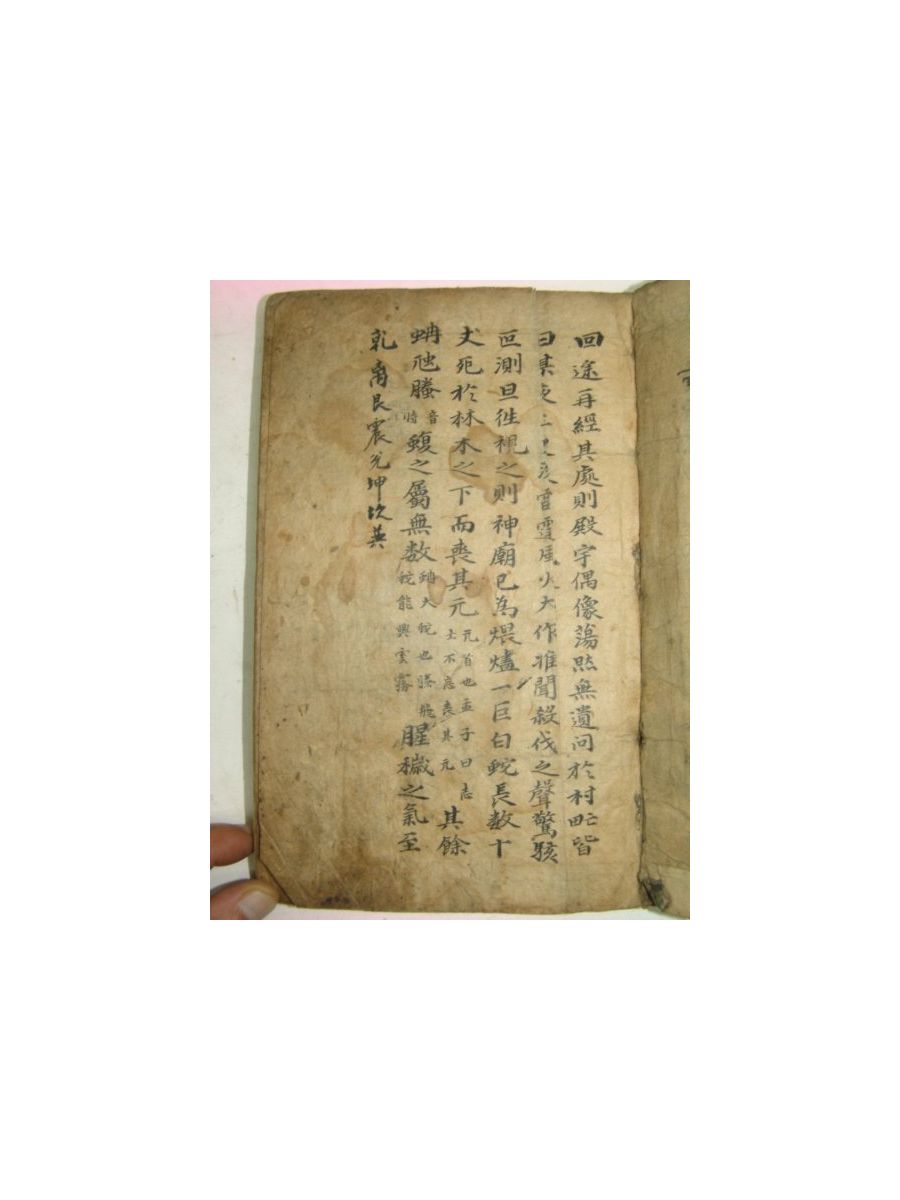 回途再經其處則殿宇偶像蕩然無遺問於村甿皆
曰某夜三更雷霆風火大作惟聞殺伐之聲驚駭
叵測旦徃視之則神廟已為煨燼一巨白蛇長数十
丈死於林木之下而喪其元 元首也孟子曰志士不忘喪其元 其餘
蚺虺螣 音騰 蝮之屬無数 蚺大蛇也螣飛蛇能興雲霧 腥穢之氣至
乹离艮震兊坤坎英